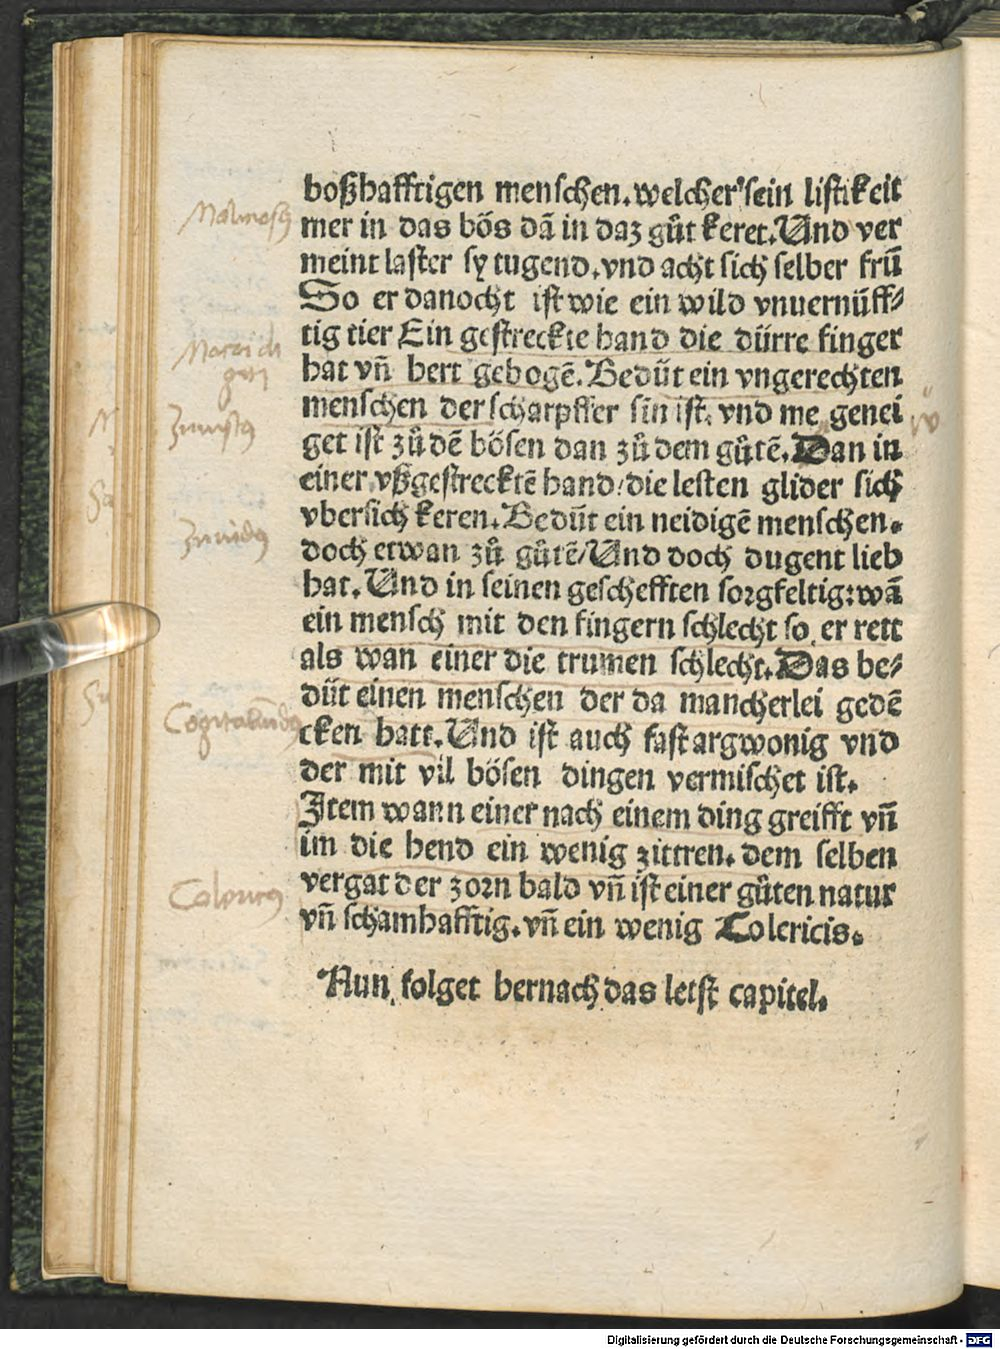 boßhafftigen menschen. welcher sein listikeit
mer in das bös dā in daz gůt keret. Und ver
meint laster sy tugend. vnd acht sich selber frū
So er danocht ist wie ein wild vnuernüff⸗
tig tier Ein gestreckte hand die dürre finger
hat vñ hert gebogē. Bedüt ein vngerechten
menschen der scharpffer sin ist. vnd me genei
get ist zů dē bösen dan zů dem gůtē. Dan in
einer vßgestrecktē hand / die lesten glider sich
vbersich keren. Bedüt ein neidigē menschen.
doch etwan zů gůtē / Und doch dugent lieb
hat. Und in seinen geschefften sorgfeltig: wā
ein mensch mit den fingern schlecht so er rett
als wan einer die trumen schlecht. Das be⸗
düt einen menschen der da mancherlei gedē
cken hatt. Und ist auch fast argwonig vnd
der mit vil bösen dingen vermischet ist.
Item wann einer nach einem ding greifft vñ
im die hend ein wenig zittren. dem selben
vergat der zorn bald vñ ist einer gůten natur
vñ schamhafftig. vñ ein wenig Colericis.
Nun folget hernach das letst capitel.
Inuidus
Colericus
Digitalisierung gefördert durch die Deutsche Forschungsgemeinschaft - DFG